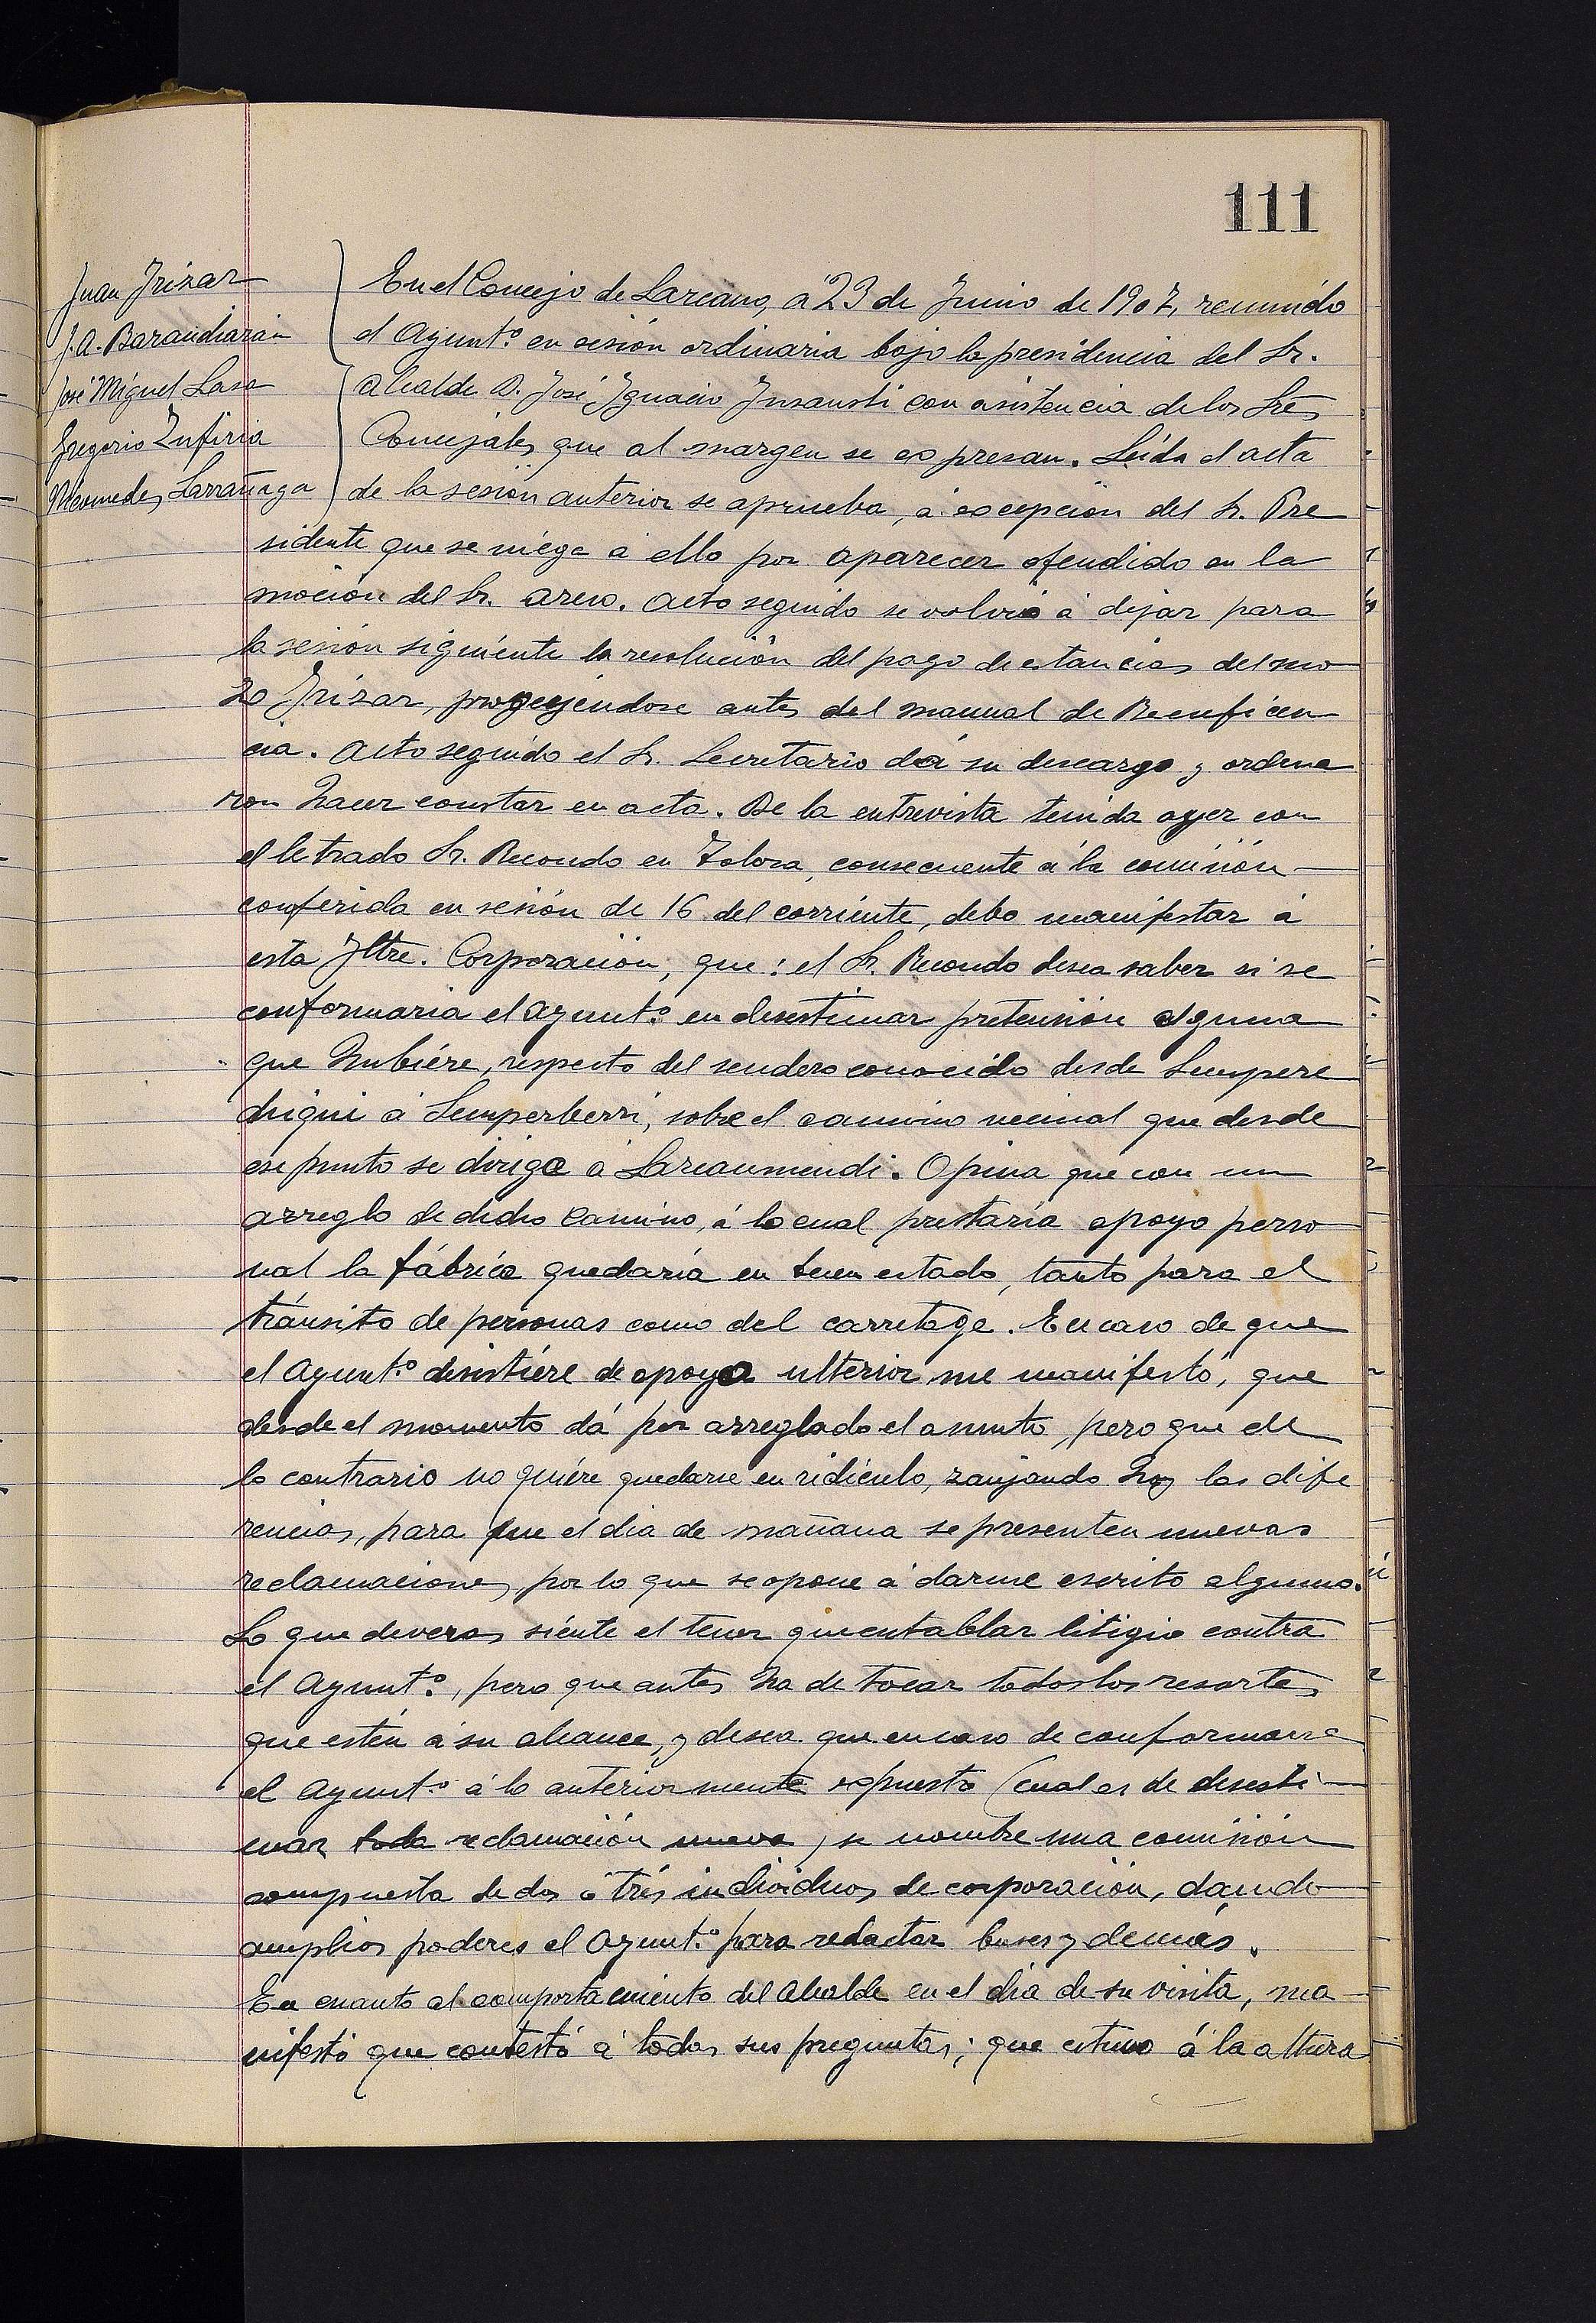 111
Juan Irizar
J. A. Barandiarán
José Miguel Lasa
Gregorio Zufiria
Nicomedes Larrañaga
En el Concejo de Lazcano, á 23 de Junio de 1907, reunido
el Ayunt.º en sesión ordinaria bajo la presidencia del Sr.
Alcalde D. José Ignacio Insausti con asistencia de los Sres
Concejales que al margen se expresan. Leída el acta
de la sesión anterior se aprueba, á excepción del Sr. Pre
sidente que se niega á ello por aparecer ofendido en la
moción del Sr. Areso. Acto seguido se volvió á dejar para
la sesión siguiente la resolución del pago de estancias del mo
zo Irizar, proveyéndose antes del manual de Beneficen
cia. Acto seguido el Sr. Secretario dá su descargo y ordena
ron hacer constar en acta. De la entrevista tenida ayer con
el letrado Sr. Recondo en Tolosa, consecuente á la comisión
conferida en sesión de 16 del corriente, debo manifestar á
esta Iltre. Corporación, que: el Sr. Recondo desea saber si se
conformaria el Ayunt.º en desestimar pretensión alguna
que hubiére, respecto del sendero conocido desde Sempere
chiqui á Semperberri, sobre el camino vecinal que desde
ese punto se dirige á Lazcaumendi. Opina que con un
arreglo de dicho camino, á lo cual prestaría apoyo perso
nal la fábrica quedaría en buen estado, tanto para el
tránsito de personas como del carretage. En caso de que
el Ayunt.º desistiére de apoyo ulterior me manifestó, que
desde el momento dá por arreglado el asunto, pero que de
lo contrario no quiére quedarse en ridículo, zanjando hoy las dife
rencias, para que el dia de mañana se presenten nuevas
reclamaciones, por lo que se opone á darme escrito alguno.
Lo que deveras siénte el tener que entablar litigio contra
el Ayunt.º, pero que antes ha de tocar todos los resortes
que estén á su alcance, y desea que en caso de conformarse
el Ayunt.º á lo anteriormente expuesto (cual es de desesti-
mar toda reclamación nueva, se nombre una comisión
compuesta de dos ó tres individuos de corporación, dando
amplios poderes el Ayunt.º para redactar bases y demás.
En cuanto al comportamiento del Alcalde en el dia de su visita, ma-
nifestó que contestó á todas sus preguntas; que estuvo á la altura